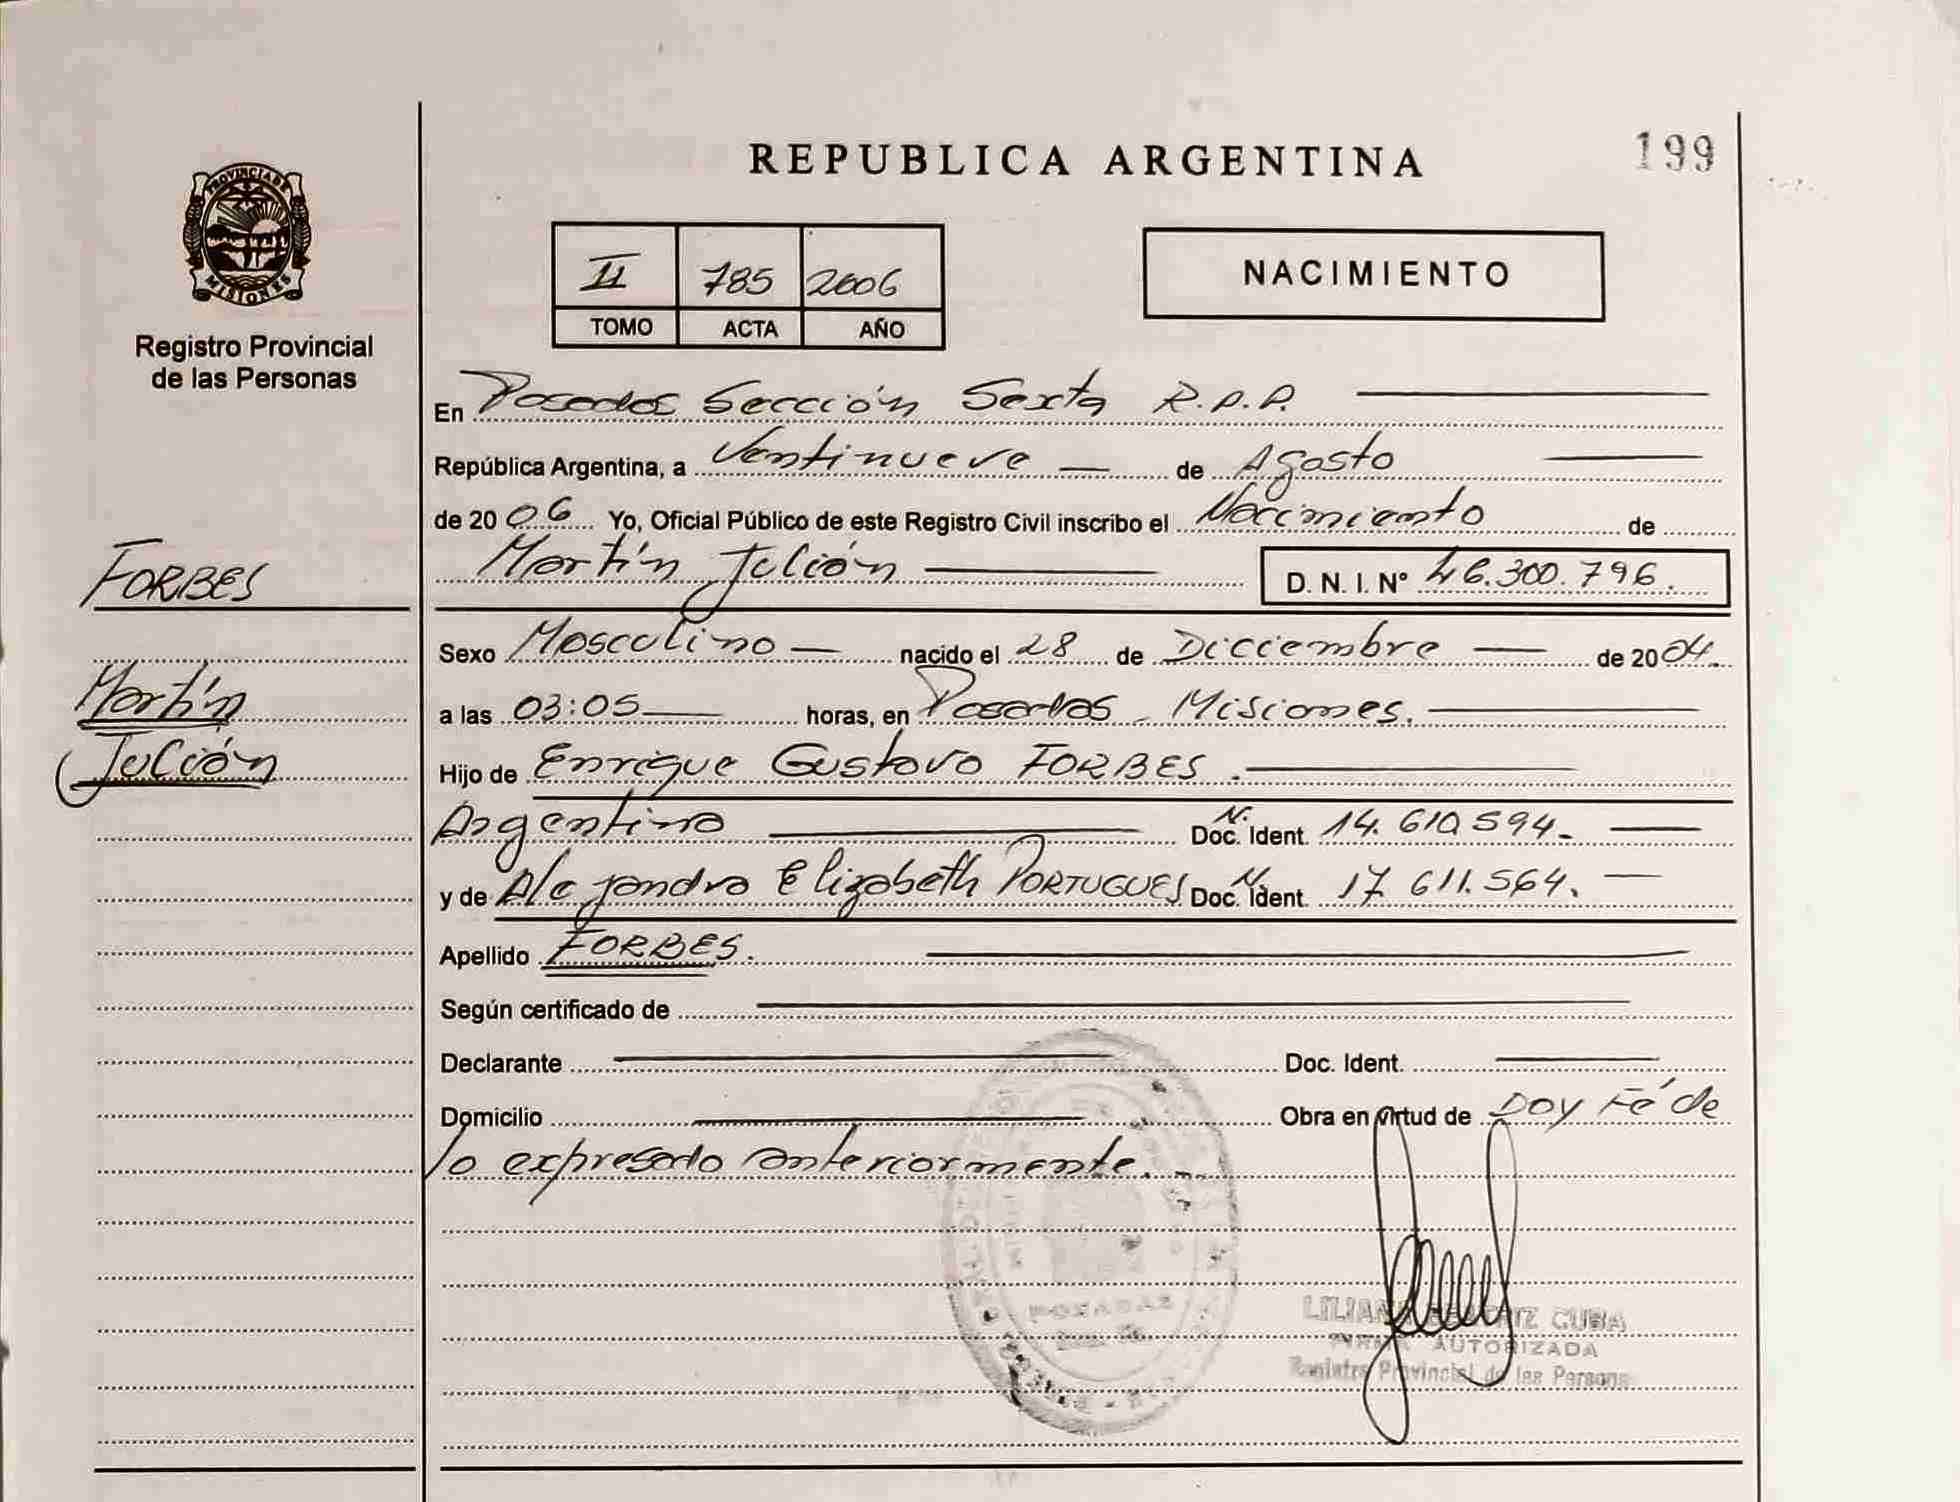 REPUBLICA ARGENTINA
199
PROVINCIA DE
MISIONES
Registro Provincial
de las Personas
II 785 2006
TOMO ACTA AÑO
NACIMIENTO
En Posadas Sección Sexta R.P.P.
República Argentina, a Ventinueve de Agosto
de 2006 Yo, Oficial Público de este Registro Civil inscribo el Nacimiento de
Martín Julián D. N. I. Nº 46.300.796.
FORBES
Martín
Julián
Sexo Masculino nacido el 28 de Dicciembre de 2004.
a las 03:05 horas, en Posadas Misiones.
Hijo de Enrique Gustavo FORBES.
Argentino N. Doc. Ident. 14.610.594.
y de Alejandra Elizabeth PORTUGUES N. Doc. Ident. 17.611.564.
Apellido FORBES.
Según certificado de
Declarante Doc. Ident.
Domicilio Obra en virtud de Doy Fé de
lo expresado anteriormente.
POSADAS
LILIANA BEATRIZ CUBA
FIRMA AUTORIZADA
Registro Provincial de las Personas